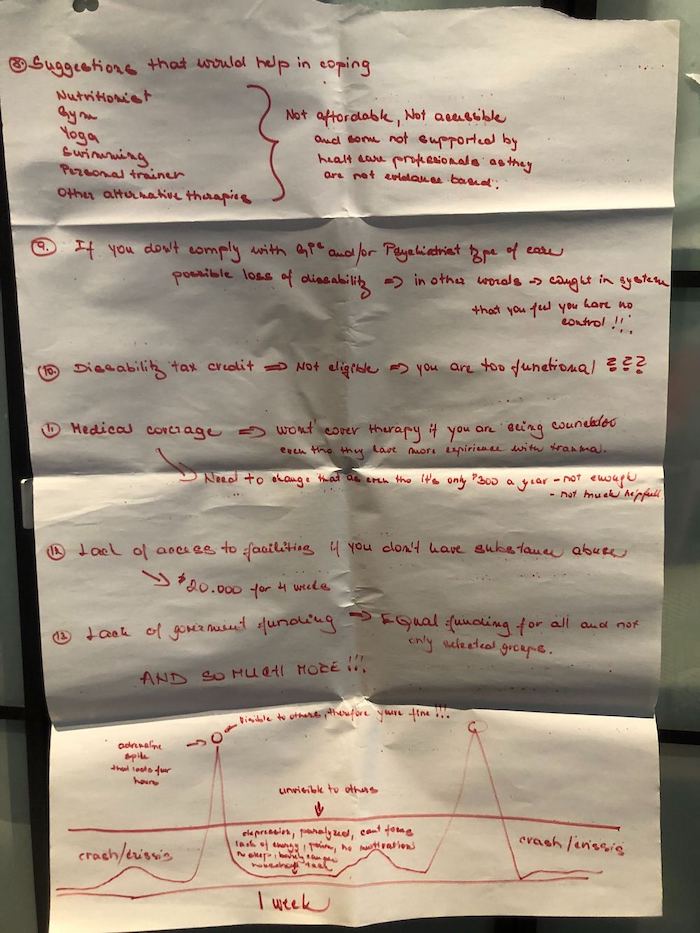 8. Suggestions that would help in coping
Nutritionist
Gym
Yoga
Swimming
Personal trainer
Other alternative therapies
Not affordable, Not accessible
and some not supported by
healt care profesionals as they
are not evidance based.
9. If you don't comply with GP's and/or Psychiatrist type of care
possible loss of dissability => in other words → caught in system
that you feel you have no
control !!!
10. Dissability tax credit => Not eligible => you are too functional ???
11. Medical coverage => wont' cover therapy if you are seing
even tho they have more expirience with trauma.
Need to change that as even tho it's only $300 a year - not enough
- not much helpfull
12. Lack of access to facilities if you don't have substance abuse
$20.000 for 4 weeks
13. Lack of goverment funding → Equal funding for all and not
only selected groups.
AND SO MUCH MORE !!!
Visible to others, therefore you're fine !!!
adrenaline
spike
that lasts few
hours
unvisible to others
depression, paralyzed, cant focus
lack of energy, pain, no motivation
no sleep, barely
household task
crash/crissis
crash/crissis
1 week